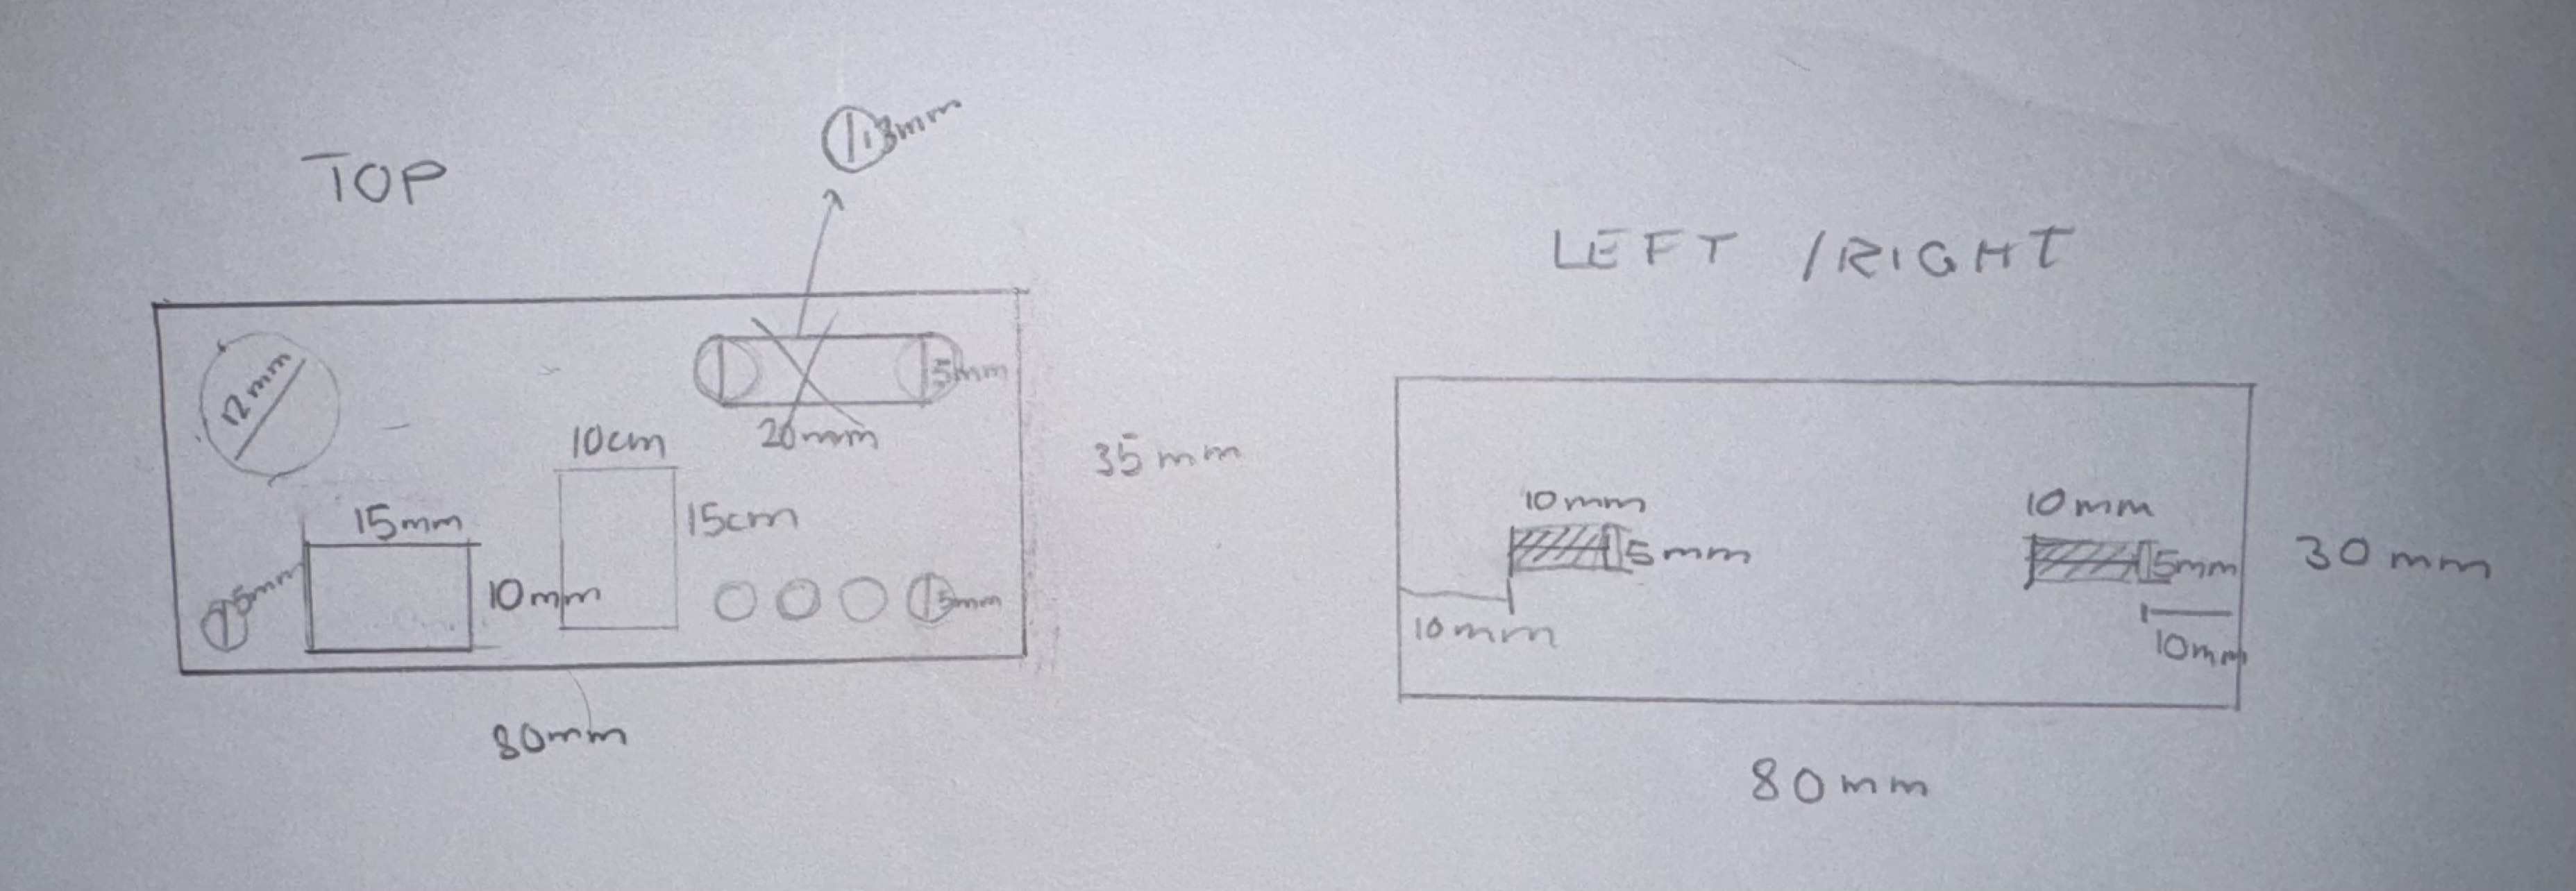 TOP
13mm
12mm
5mm
20mm
10cm
15cm
35mm
15mm
10mm
5mm
5mm
80mm
LEFT / RIGHT
10mm
5mm
10mm
10mm
5mm
10mm
30mm
80mm